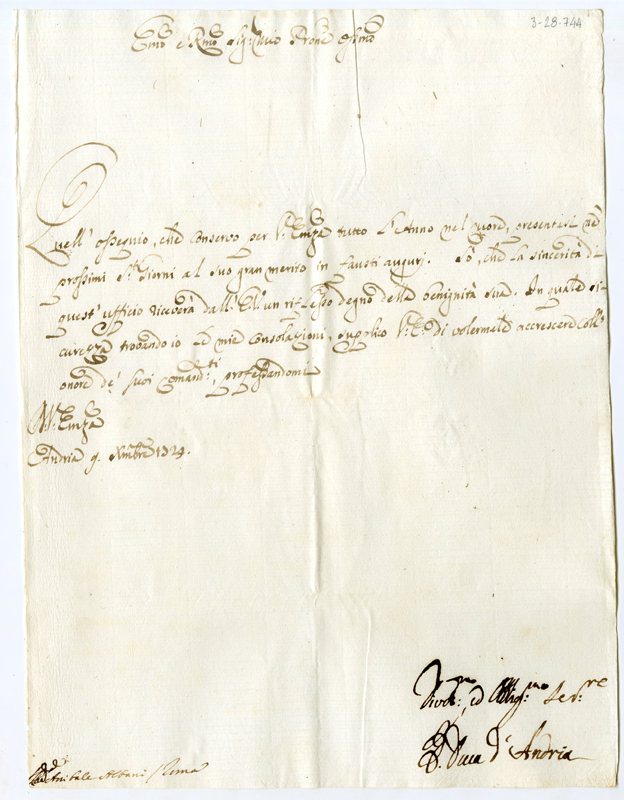 3-28-744
Emo e Rmo Sig: mio Prone Ossmo
Quell' ossequio, che conservo per V: Emza tutto l'Anno nel cuore, presentasi ne'
prossimi S:ti Giorni al suo gran merito in fausti augurj. Sò, che la sincerità di
quest' ufficio riceverà dall' E: V: un riflesso degno della benignità sua. In quale si-
curezza trovando io le mie consolazioni, supplico V: E: di volermele accrescere coll'
onore de' suoi comand:ti, professandomi
Di V: Emza
Andria 9. Xmbre 1724.
Divot:mo, ed Obblig:mo Ser:re
Il Duca d' Andria
Annibale Albani / Roma